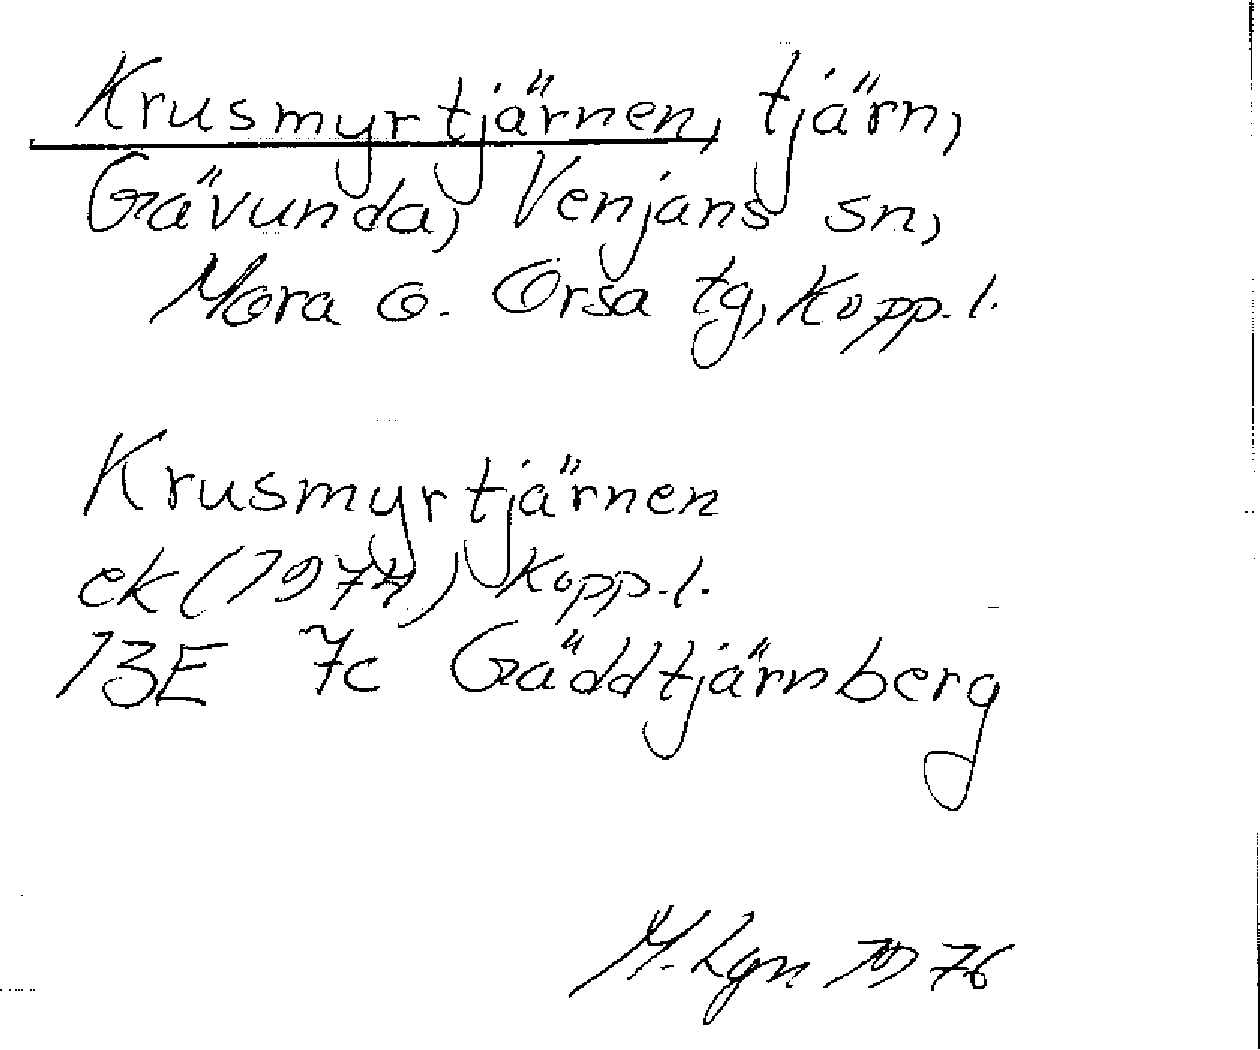 Krusmyrtjärnen, tjärn,
Gävunda, Venjans sn,
Mora o. Orsa tg, Kopp. l.
Krusmyrtjärnen
ek (1974) Kopp. l.
13E 7c Gäddtjärnberg
M. Lgn 1976